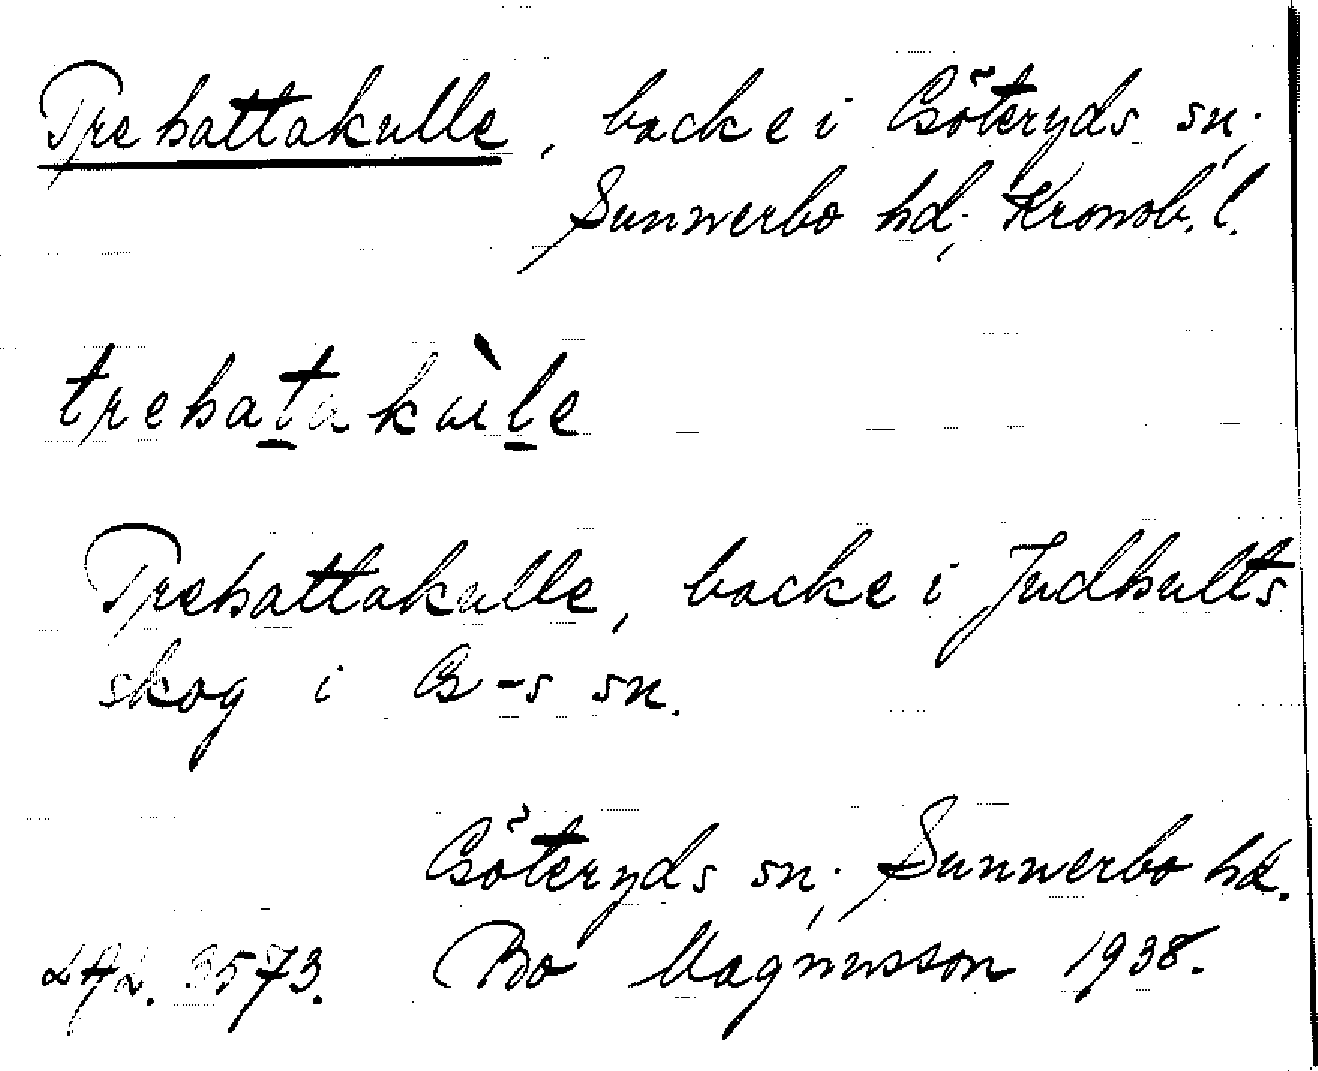 Trehattakulle, backe i Göteryds sn;
Sunnerbo hd; Kronob. l.
trehatakùle
Trehattakulle, backe i Judhults
skog i G-s sn.
Göteryds sn; Sunnerbo hd.
LAL. 3573. Bo Magnusson 1938.